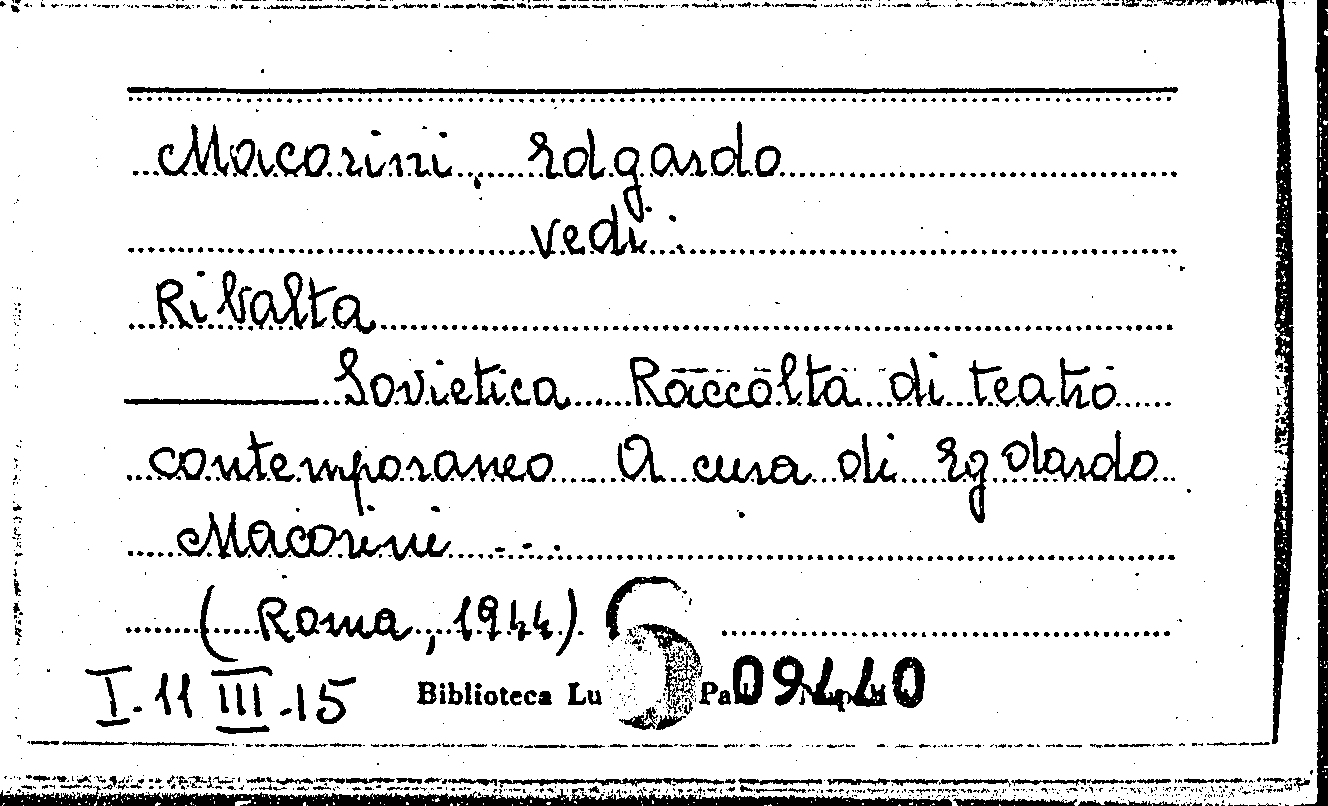 Macorini, Edgardo
vedi:
Ribalta
Sovietica Raccolta di teatro
contemporaneo A cura di Egdardo
Macorini ...
(Roma, 1944)
I.11 III.15 Biblioteca Lu